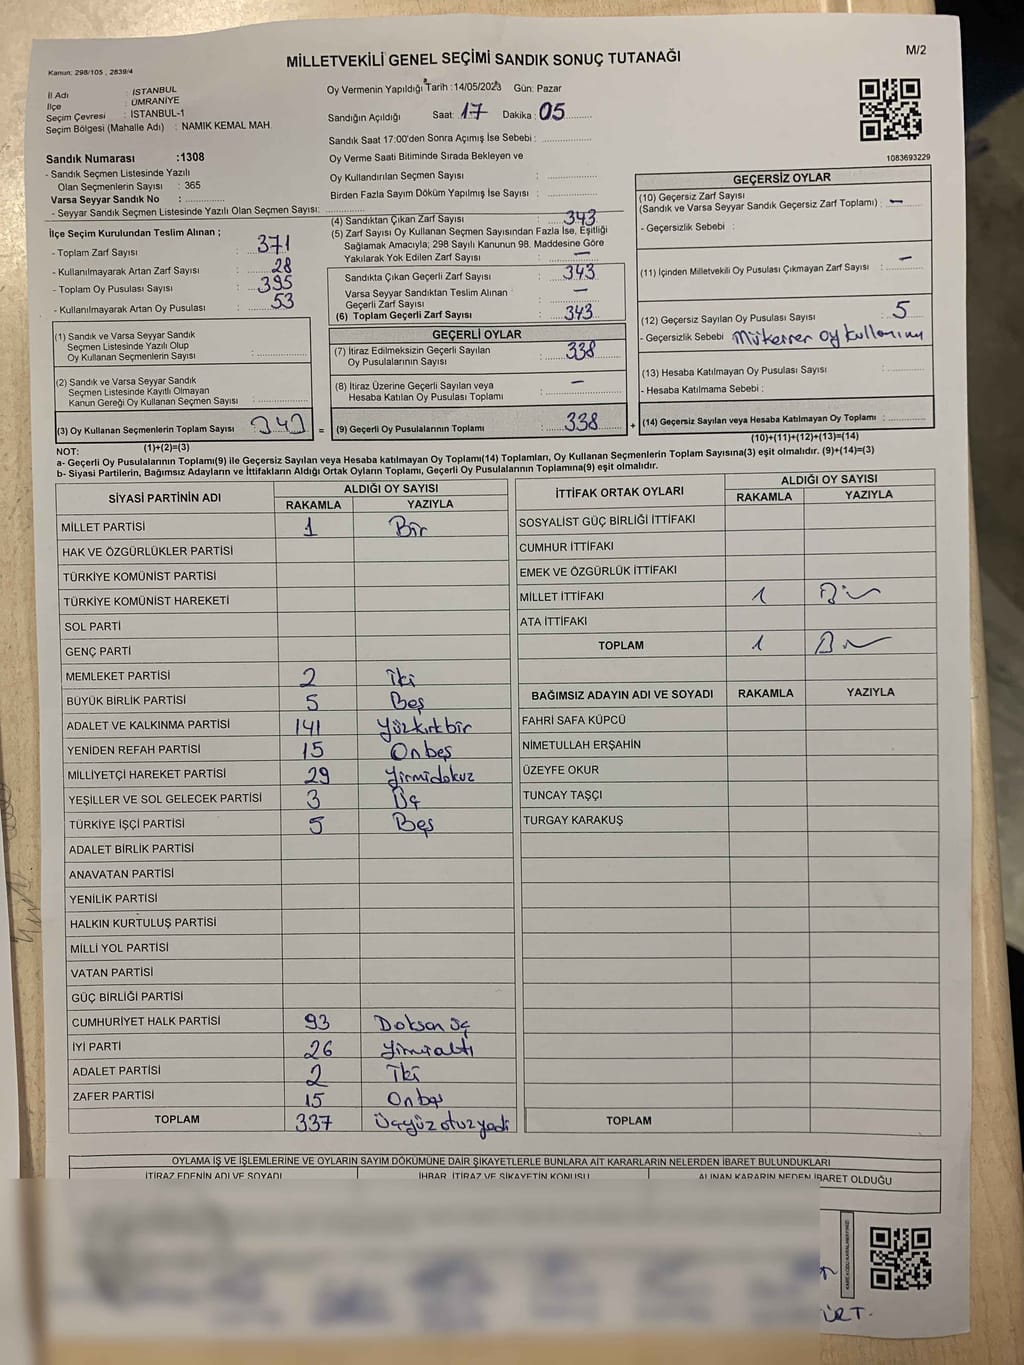 M/2
MİLLETVEKİLİ GENEL SEÇİMİ SANDIK SONUÇ TUTANAĞI
Kanun: 298/105 , 2839/4
İl Adı : İSTANBUL
İlçe : ÜMRANİYE
Seçim Çevresi : İSTANBUL-1
Seçim Bölgesi (Mahalle Adı) : NAMIK KEMAL MAH.
Oy Vermenin Yapıldığı Tarih :14/05/2023 Gün: Pazar
Sandığın Açıldığı Saat: 17 Dakika : 05
Sandık Saat 17:00'den Sonra Açımış İse Sebebi :
Oy Verme Saati Bitiminde Sırada Bekleyen ve
Oy Kullandırılan Seçmen Sayısı :
Birden Fazla Sayım Döküm Yapılmış İse Sayısı :
1083693229
Sandık Numarası :1308
- Sandık Seçmen Listesinde Yazılı
Olan Seçmenlerin Sayısı : 365
Varsa Seyyar Sandık No :
- Seyyar Sandık Seçmen Listesinde Yazılı Olan Seçmen Sayısı:
İlçe Seçim Kurulundan Teslim Alınan ;
- Toplam Zarf Sayısı : 371
- Kullanılmayarak Artan Zarf Sayısı : 28
- Toplam Oy Pusulası Sayısı : 395
- Kullanılmayarak Artan Oy Pusulası : 53
(1) Sandık ve Varsa Seyyar Sandık
Seçmen Listesinde Yazılı Olup
Oy Kullanan Seçmenlerin Sayısı :
(2) Sandık ve Varsa Seyyar Sandık
Seçmen Listesinde Kayıtlı Olmayan
Kanun Gereği Oy Kullanan Seçmen Sayısı :
(3) Oy Kullanan Seçmenlerin Toplam Sayısı : 343 =
(1)+(2)=(3)
(4) Sandıktan Çıkan Zarf Sayısı : 343
(5) Zarf Sayısı Oy Kullanan Seçmen Sayısından Fazla İse, Eşitliği
Sağlamak Amacıyla; 298 Sayılı Kanunun 98. Maddesine Göre
Yakılarak Yok Edilen Zarf Sayısı : —
Sandıkta Çıkan Geçerli Zarf Sayısı : 343
Varsa Seyyar Sandıktan Teslim Alınan
Geçerli Zarf Sayısı : —
(6) Toplam Geçerli Zarf Sayısı : 343
GEÇERLİ OYLAR
(7) İtiraz Edilmeksizin Geçerli Sayılan
Oy Pusulalarının Sayısı : 338
(8) İtiraz Üzerine Geçerli Sayılan veya
Hesaba Katılan Oy Pusulası Toplamı : —
(9) Geçerli Oy Pusulalarının Toplamı : 338 +
GEÇERSİZ OYLAR
(10) Geçersiz Zarf Sayısı
(Sandık ve Varsa Seyyar Sandık Geçersiz Zarf Toplamı) : —
- Geçersizlik Sebebi :
(11) İçinden Milletvekili Oy Pusulası Çıkmayan Zarf Sayısı : —
(12) Geçersiz Sayılan Oy Pusulası Sayısı : 5
- Geçersizlik Sebebi Mükerrer oy kullanımı
(13) Hesaba Katılmayan Oy Pusulası Sayısı :
- Hesaba Katılmama Sebebi :
(14) Geçersiz Sayılan veya Hesaba Katılmayan Oy Toplamı :
(10)+(11)+(12)+(13)=(14)
NOT:
a- Geçerli Oy Pusulalarının Toplamı(9) ile Geçersiz Sayılan veya Hesaba katılmayan Oy Toplamı(14) Toplamları, Oy Kullanan Seçmenlerin Toplam Sayısına(3) eşit olmalıdır. (9)+(14)=(3)
b- Siyasi Partilerin, Bağımsız Adayların ve İttifakların Aldığı Ortak Oyların Toplamı, Geçerli Oy Pusulalarının Toplamına(9) eşit olmalıdır.
SİYASİ PARTİNİN ADI ALDIĞI OY SAYISI
RAKAMLA YAZIYLA
MİLLET PARTİSİ 1 Bir
HAK VE ÖZGÜRLÜKLER PARTİSİ
TÜRKİYE KOMÜNİST PARTİSİ
TÜRKİYE KOMÜNİST HAREKETİ
SOL PARTİ
GENÇ PARTİ
MEMLEKET PARTİSİ 2 iki
BÜYÜK BİRLİK PARTİSİ 5 Beş
ADALET VE KALKINMA PARTİSİ 141 Yüzkırkbir
YENİDEN REFAH PARTİSİ 15 Onbeş
MİLLİYETÇİ HAREKET PARTİSİ 29 Yirmidokuz
YEŞİLLER VE SOL GELECEK PARTİSİ 3 Üç
TÜRKİYE İŞÇİ PARTİSİ 5 Beş
ADALET BİRLİK PARTİSİ
ANAVATAN PARTİSİ
YENİLİK PARTİSİ
HALKIN KURTULUŞ PARTİSİ
MİLLİ YOL PARTİSİ
VATAN PARTİSİ
GÜÇ BİRLİĞİ PARTİSİ
CUMHURİYET HALK PARTİSİ 93 Doksan üç
İYİ PARTİ 26 Yirmialtı
ADALET PARTİSİ 2 İki
ZAFER PARTİSİ 15 Onbeş
TOPLAM 337 Üçyüzotuzyedi
İTTİFAK ORTAK OYLARI ALDIĞI OY SAYISI
RAKAMLA YAZIYLA
SOSYALİST GÜÇ BİRLİĞİ İTTİFAKI
CUMHUR İTTİFAKI
EMEK VE ÖZGÜRLÜK İTTİFAKI
MİLLET İTTİFAKI 1 Bir
ATA İTTİFAKI
TOPLAM 1 Bir
BAĞIMSIZ ADAYIN ADI VE SOYADI RAKAMLA YAZIYLA
FAHRİ SAFA KÜPCÜ
NİMETULLAH ERŞAHİN
ÜZEYFE OKUR
TUNCAY TAŞÇI
TURGAY KARAKUŞ
TOPLAM
OYLAMA İŞ VE İŞLEMLERİNE VE OYLARIN SAYIM DÖKÜMÜNE DAİR ŞİKAYETLERLE BUNLARA AİT KARARLARIN NELERDEN İBARET BULUNDUKLARI
İTİRAZ EDENİN ADI VE SOYADI İHBAR, İTİRAZ VE ŞİKAYETİN KONUSU ALINAN KARARIN NEDEN İBARET OLDUĞU